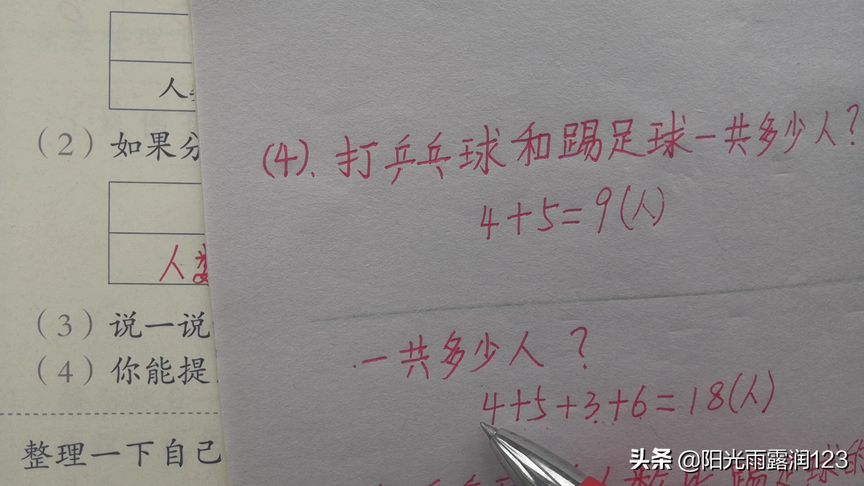 人
(2) 如果分
人数
(3) 说一说
(4) 你能提
整理一下自己
(4). 打乒乓球和踢足球一共多少人?
4+5=9(人)
一共多少人?
4+5+3+6=18(人)
头条 @阳光雨露润123